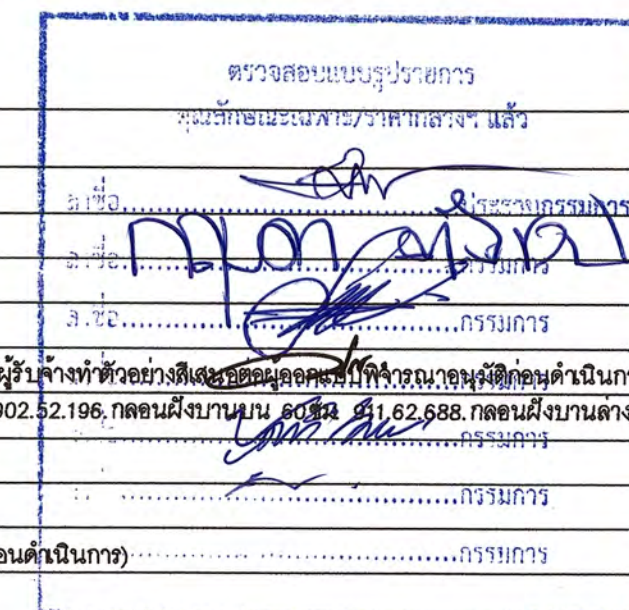 ตรวจสอบแบบรูปรายการ
คุณลักษณะเฉพาะ/ราคากลางฯ แล้ว
ลงชื่อ................ประธานกรรมการ
ลงชื่อ................กรรมการ
ลงชื่อ................กรรมการ
ผู้รับจ้างทำตัวอย่างสีเสนอต่อผู้ออกแบบพิจารณาอนุมัติก่อนดำเนินการ
902.52.196. กลอนฝังบานบน 60ซม. 911.62.688. กลอนฝังบานล่าง
................กรรมการ
................กรรมการ
อนดำเนินการ)................กรรมการ